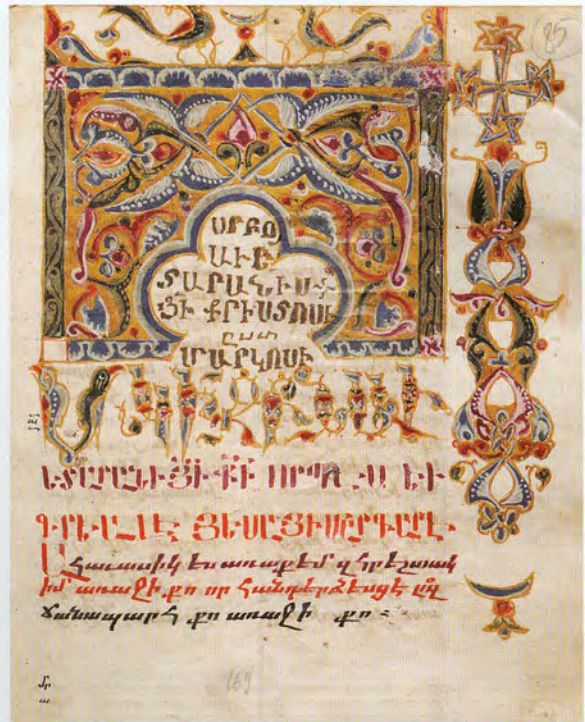 ՍՐԲՈ
ԱՒԵ
ՏԱՐԱՆԻ
ՅԻ ՔՐԻՍՏՈՍԻ
ըստ
ՄԱՐԿՈՍԻ
ՍԿԻԶԲՆ ԱՒ
ԵՏԱՐԱՆԻ ՅԻ ՔԻ ՈՐՊՍ ԵՒ
ԳՐԵԱԼ Է ՅԵՍԱՅԻ ՄԱՐԳԱՐԷ.
Ահաւասիկ ես առաքեմ զհրեշտակ
իմ առաջի քո որ հանդերձեսցէ զ
ճանապարհ քո առաջի քո
85
169